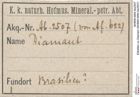 K. k. naturh. Hofmus. Mineral.-petr. Abt.
Akq.-Nr. Ab.2507 (von Af.622)
Name Diamant
Fundort Brasilien?